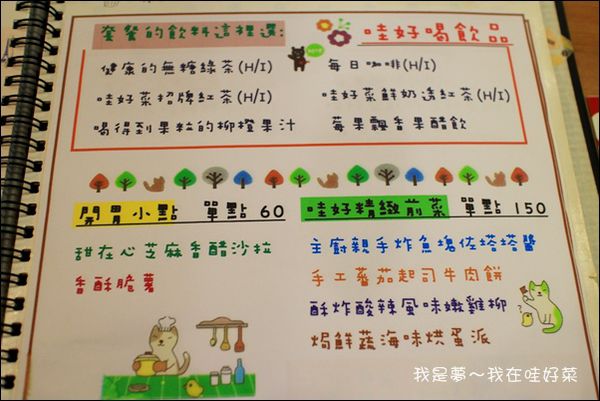 套餐的飲料這裡選:
哇好喝飲品
健康的無糖綠茶(H/I)
每日咖啡(H/I)
哇好菜招牌紅茶(H/I)
哇好菜鮮奶濃紅茶(H/I)
喝得到果粒的柳橙果汁
莓果飄香果醋飲
開胃小點 單點 60
哇好精緻前菜 單點 150
甜在心芝麻香醋沙拉
香酥脆薯
主廚親手炸魚塊佐塔塔醬
手工蕃茄起司牛肉餅
酥炸酸辣風味嫩雞柳
焗鮮蔬海味烘蛋派
我是夢～我在哇好菜